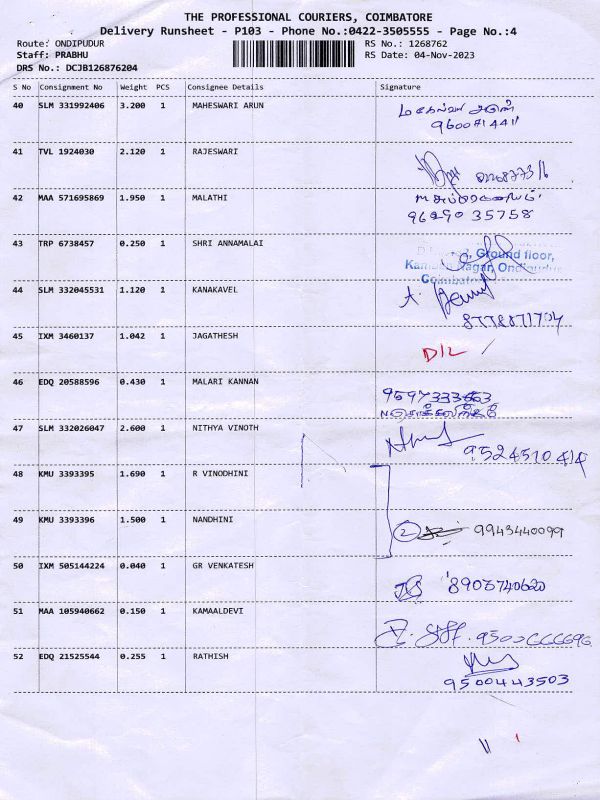 THE PROFESSIONAL COURIERS, COIMBATORE
Delivery Runsheet - P103 - Phone No.:0422-3505555 - Page No.:4
Route: ONDIPUDUR RS No.: 1268762
Staff: PRABHU RS Date: 04-Nov-2023
DRS No.: DCJB126876204
S No Consignment No Weight PCS Consignee Details Signature
40 SLM 331992406 3.200 1 MAHESWARI ARUN
41 TVL 1924030 2.120 1 RAJESWARI
42 MAA 571695869 1.950 1 MALATHI
96290 35758
43 TRP 6738457 0.250 1 SHRI ANNAMALAI
Ground floor,
44 SLM 332045531 1.120 1 KANAKAVEL
45 IXM 3460137 1.042 1 JAGATHESH
D/L
46 EDQ 20588596 0.430 1 MALARI KANNAN
47 SLM 332026047 2.600 1 NITHYA VINOTH
9524510414
48 KMU 3393395 1.690 1 R VINODHINI
49 KMU 3393396 1.500 1 NANDHINI
2 9943440099
50 IXM 505144224 0.040 1 GR VENKATESH
51 MAA 105940662 0.150 1 KAMAALDEVI
52 EDQ 21525544 0.255 1 RATHISH
9500443503